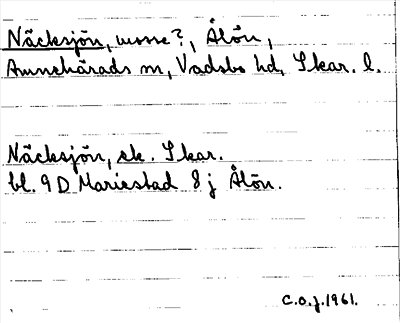 Näcksjön, mosse?, Ålön,
Amnehärads sn, Vadsbo hd, Skar. l.
Näcksjön, ek. Skar.
bl. 9D Mariestad 8j Ålön.
C.O.J. 1961.